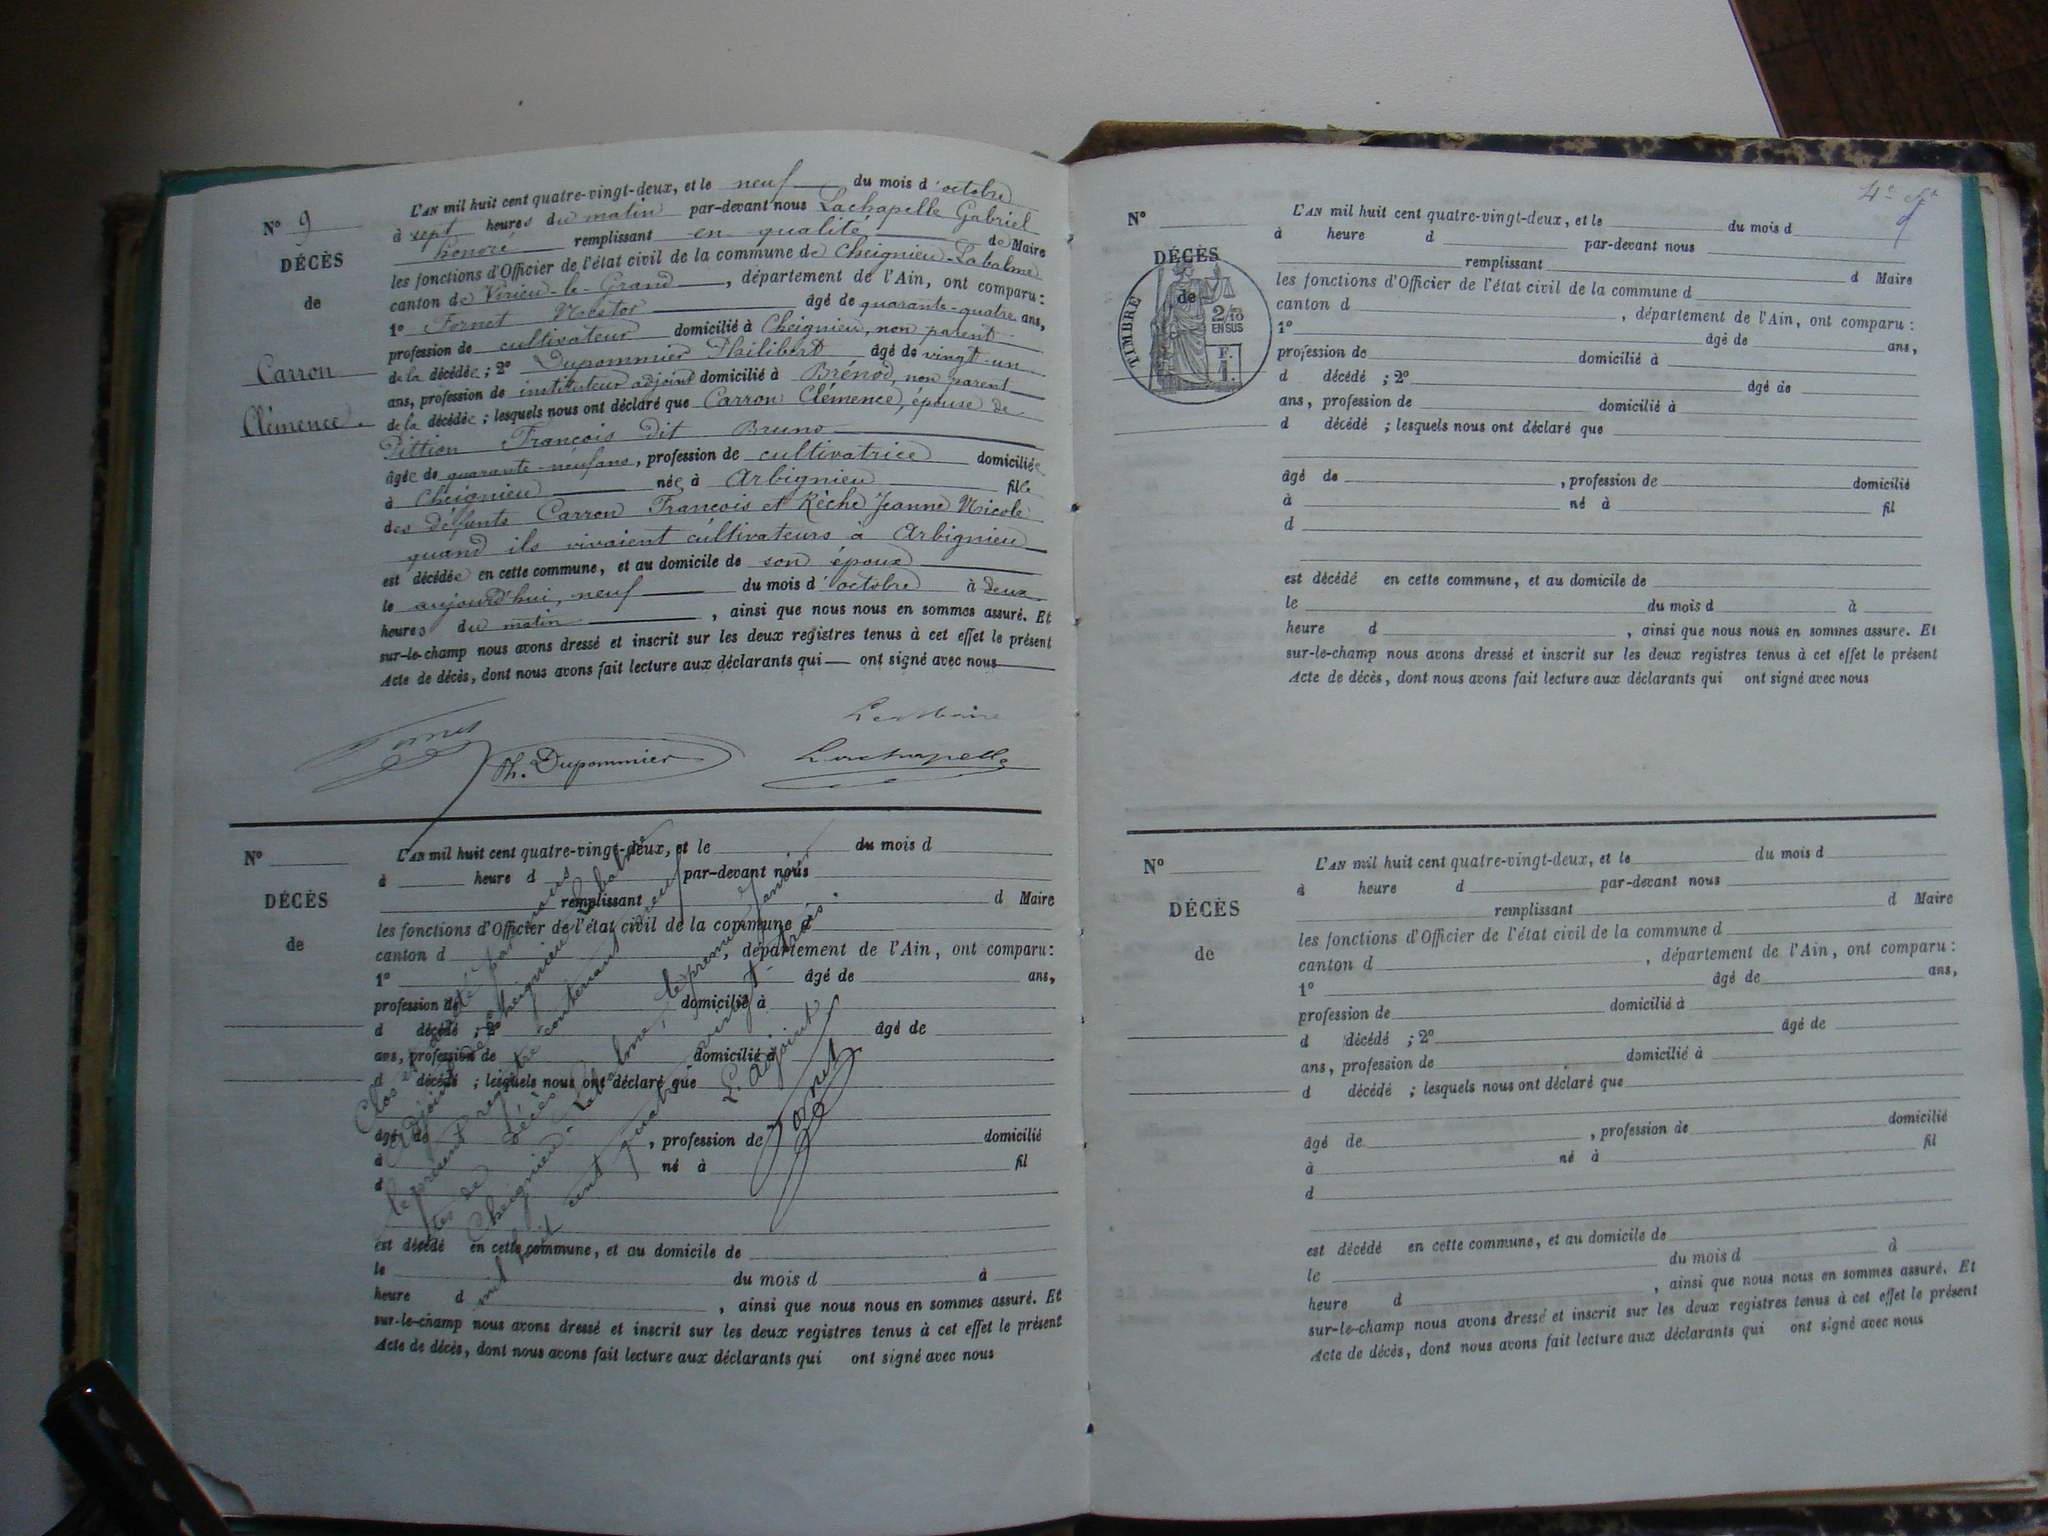 N° 9
DÉCÈS
de
Carron
Clémence.
L'AN mil huit cent quatre-vingt-deux, et le neuf du mois d'octobre
à sept heures du matin par-devant nous Lachapelle Gabriel
honoré remplissant en qualité de Maire
les fonctions d'Officier de l'état civil de la commune de Cheignieu-Labalme
canton de Virieu-le-Grand, département de l'Ain, ont comparu :
1° Fornet Nestor âgé de quarante-quatre ans,
profession de cultivateur domicilié à Cheignieu, non parent
de la décédée ; 2° Dupommier Philibert âgé de vingt-un
ans, profession de instituteur adjoint domicilié à Brénod, non parent
de la décédée ; lesquels nous ont déclaré que Carron Clémence, épouse de
Pittion François dit Bruno
âgée de quarante-neuf ans, profession de cultivatrice domiciliée
à Cheignieu née à Arbignieu fille
des défunts Carron François et Rèche Jeanne Nicole
quand ils vivaient cultivateurs à Arbignieu
est décédée en cette commune, et au domicile de son époux
le aujourd'hui, neuf du mois d'octobre à deux
heures du matin, ainsi que nous nous en sommes assuré. Et
sur-le-champ nous avons dressé et inscrit sur les deux registres tenus à cet effet le présent
Acte de décès, dont nous avons fait lecture aux déclarants qui ont signé avec nous
Le Maire
Fornet
Ph. Dupommier
Lachapelle
N°
DÉCÈS
de
L'AN mil huit cent quatre-vingt-deux, et le du mois d
à heure d par-devant nous
remplissant d Maire
les fonctions d'Officier de l'état civil de la commune d
canton d , département de l'Ain, ont comparu :
1° âgé de ans,
profession de domicilié à
d décédé ; 2° âgé de
ans, profession de domicilié à
d décédé ; lesquels nous ont déclaré que
âgé de , profession de domicilié
à né à fil
d
est décédé en cette commune, et au domicile de
le du mois d à
heure d , ainsi que nous nous en sommes assuré. Et
sur-le-champ nous avons dressé et inscrit sur les deux registres tenus à cet effet le présent
Acte de décès, dont nous avons fait lecture aux déclarants qui ont signé avec nous
Clos et arrêté par nous
adjoint de Cheignieu-Labalme
le présent registre contenant neuf
actes de décès
Cheignieu-Labalme, le premier janvier
mil huit cent quatre-vingt-trois.
L'adjoint
Fornet
4e
N°
DÉCÈS
de
TIMBRE
2/10
EN SUS
F.
1.
L'AN mil huit cent quatre-vingt-deux, et le du mois d
à heure d par-devant nous
remplissant d Maire
les fonctions d'Officier de l'état civil de la commune d
canton d , département de l'Ain, ont comparu :
1° âgé de ans,
profession de domicilié à
d décédé ; 2° âgé de
ans, profession de domicilié à
d décédé ; lesquels nous ont déclaré que
âgé de , profession de domicilié
à né à fil
d
est décédé en cette commune, et au domicile de
le du mois d à
heure d , ainsi que nous nous en sommes assuré. Et
sur-le-champ nous avons dressé et inscrit sur les deux registres tenus à cet effet le présent
Acte de décès, dont nous avons fait lecture aux déclarants qui ont signé avec nous
N°
DÉCÈS
de
L'AN mil huit cent quatre-vingt-deux, et le du mois d
à heure d par-devant nous
remplissant d Maire
les fonctions d'Officier de l'état civil de la commune d
canton d , département de l'Ain, ont comparu :
1° âgé de ans,
profession de domicilié à
d décédé ; 2° âgé de
ans, profession de domicilié à
d décédé ; lesquels nous ont déclaré que
âgé de , profession de domicilié
à né à fil
d
est décédé en cette commune, et au domicile de
le du mois d à
heure d , ainsi que nous nous en sommes assuré. Et
sur-le-champ nous avons dressé et inscrit sur les deux registres tenus à cet effet le présent
Acte de décès, dont nous avons fait lecture aux déclarants qui ont signé avec nous